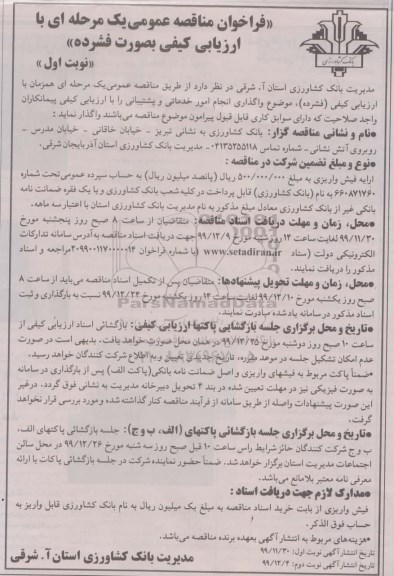 «فراخوان مناقصه عمومی یک مرحله ای با
ارزیابی کیفی بصورت فشرده»
«نوبت اول»
بانک کشاورزی
مدیریت بانک کشاورزی استان آ. شرقی در نظر دارد از طریق مناقصه عمومی یک مرحله ای همزمان با
ارزیابی کیفی (فشرده)، موضوع واگذاری انجام امور خدماتی و پشتیبانی را با ارزیابی کیفی پیمانکاران
واجد صلاحیت که دارای سوابق کاری قابل قبول پیرامون موضوع مناقصه می‌باشند واگذار نماید :
•نام و نشانی مناقصه گزار: بانک کشاورزی به نشانی تبریز - خیابان خاقانی - خیابان مدرس -
روبروی آتش نشانی - شماره تماس ۰۴۱۳۵۲۵۵۱۱۸ - مدیریت بانک کشاورزی استان آذربایجان شرقی.
•نوع و مبلغ تضمین شرکت در مناقصه :
ارایه فیش واریزی به مبلغ ۵۰۰/۰۰۰/۰۰۰ ریال (پانصد میلیون ریال) به حساب سپرده عمومی تحت شماره
۶۶۰۸۷۱۷۶۰ به نام (بانک کشاورزی) قابل پرداخت در کلیه شعب بانک کشاورزی و یا یک فقره ضمانت نامه
بانکی غیر از بانک کشاورزی معادل مبلغ مذکور به نام بانک کشاورزی مدیریت استان با اعتبار سه ماهه.
•محل، زمان و مهلت دریافت اسناد مناقصه: متقاضیان از ساعت ۸ صبح روز پنجشنبه مورخ
۹۹/۱۱/۳۰ لغایت ساعت ۱۴ روز شنبه مورخ ۹۹/۱۲/۹ جهت دریافت اسناد مناقصه به آدرس سامانه تدارکات
الکترونیکی دولت (ستاد www.setadiran.ir (با شماره فراخوان ۲۰۹۹۰۰۱۱۷۰۰۰۰۰۱۴ مراجعه و اسناد
مذکور را دریافت نمایند.
•محل، زمان و مهلت تحویل پیشنهادها: متقاضیان پس از تکمیل اسناد مناقصه می‌باید از ساعت ۸
صبح روز یکشنبه مورخ ۹۹/۱۲/۱۰ لغایت ساعت ۱۴ روز یکشنبه مورخ ۹۹/۱۲/۲۴ نسبت به بارگذاری و ثبت
اسناد مذکور در سامانه یادشده مبادرت نمایند.
•تاریخ و محل برگزاری جلسه بازگشایی پاکتها ارزیابی کیفی: بازگشائی اسناد ارزیابی کیفی از
ساعت ۱۰ صبح روز دوشنبه مورخ ۹۹/۱۲/۲۵ در همان محل صورت خواهد یافت. بدیهی است در صورت
عدم امکان تشکیل جلسه در موعد مقرره، تاریخ جدیدی تعیین و به اطلاع شرکت کنندگان خواهد رسید.
•ضمناً پاکت مربوط به فیشهای واریزی و اصل ضمانت نامه بانکی (پاکت الف) پس از بارگذاری در سامانه
به صورت فیزیکی نیز در مهلت تعیین شده در بند ۴ تحویل دبیرخانه مدیریت به نشانی فوق گردد. درغیر
این صورت پیشنهادات واصله از طریق سامانه از فرآیند مناقصه کنار گذاشته شده و مورد بررسی قرار نخواهد
گرفت.
•تاریخ و محل برگزاری جلسه بازگشائی پاکتهای (الف، ب و ج): جلسه بازگشائی پاکتهای الف،
ب و ج شرکت کنندگان حائز شرایط راس ساعت ۱۰ قبل صبح روز سه شنبه مورخ ۹۹/۱۲/۲۶ در محل سالن
اجتماعات مدیریت استان برگزار خواهد شد. ضمناً حضور نماینده شرکت در جلسه بازگشائی پاکات با ارائه
معرفی نامه معتبر بلامانع می‌باشد.
•مدارک لازم جهت دریافت اسناد :
فیش واریزی از بابت خرید اسناد مناقصه به مبلغ یک میلیون ریال به نام بانک کشاورزی قابل واریز به
حساب فوق الذکر.
•هزینه‌های مربوط به انتشار آگهی بعهده برنده مناقصه می‌باشد.
تاریخ انتشار آگهی نوبت اول: ۹۹/۱۱/۳۰
تاریخ انتشار آگهی نوبت دوم: ۹۹/۱۲/۴
مدیریت بانک کشاورزی استان آ. شرقی
ParsNamadData